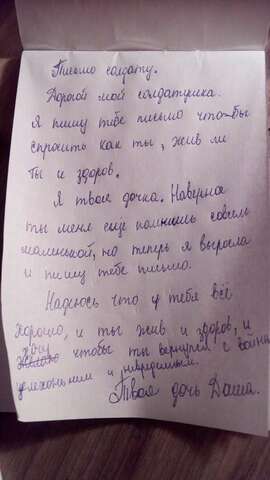 Письмо солдату.
Дорогой мой солдатушка.
Я пишу тебе письмо что-бы
спросить как ты, жив ли
ты и здоров.
Я твоя дочка. Наверное
ты меня еще помнишь совсем
маленькой, но теперь я выросла
и пишу тебе письмо.
Надеюсь что у тебя всё
хорошо, и ты жив и здоров, и
хочу
чтобы ты вернулся с войны
целехоньким и невредимым.
Твоя дочь Даша.